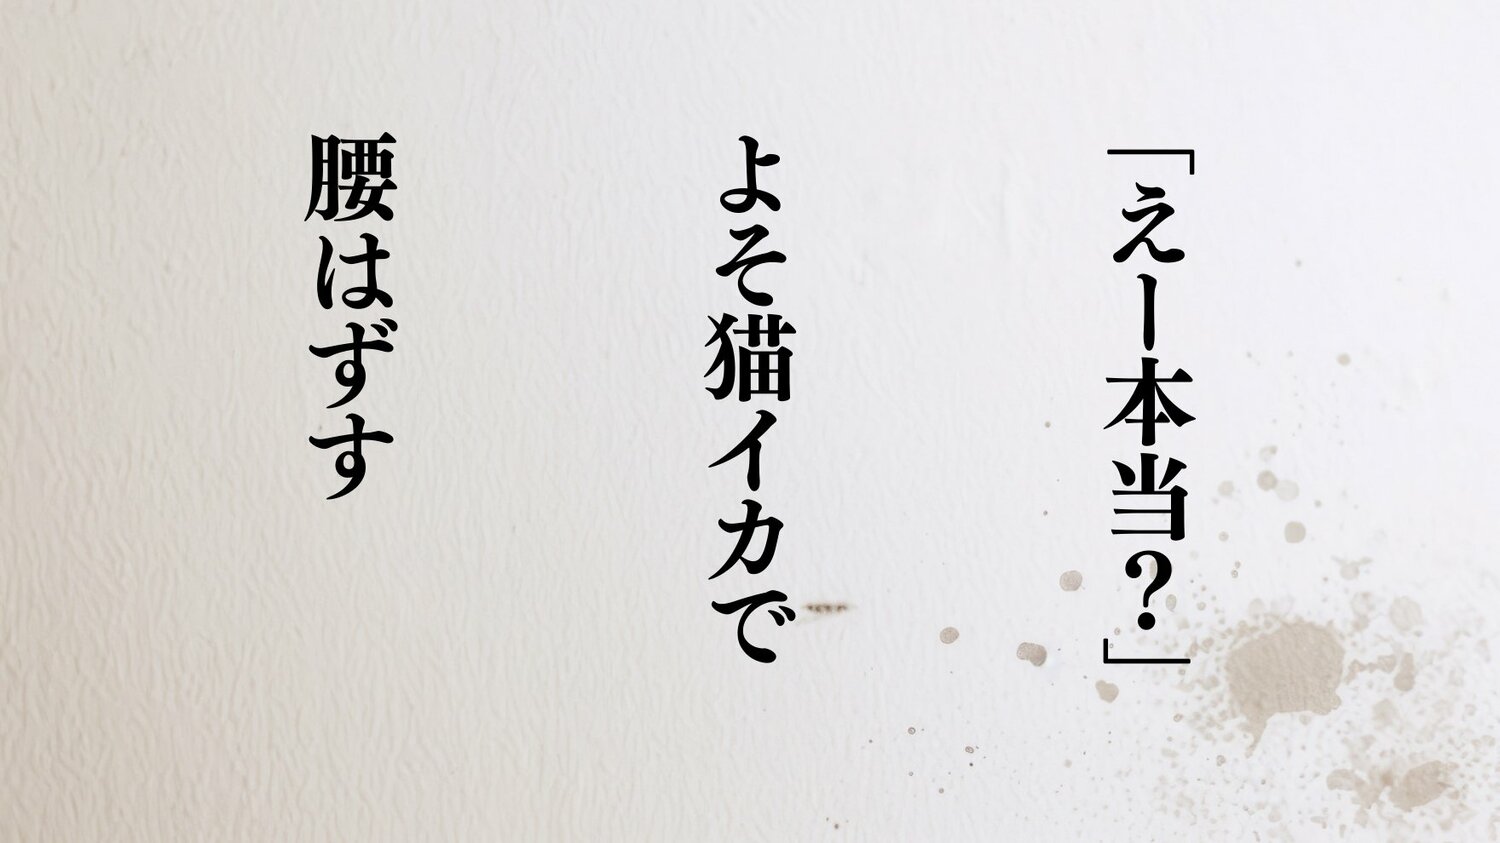 「えー本当?」
よそ猫イカで
腰はずす